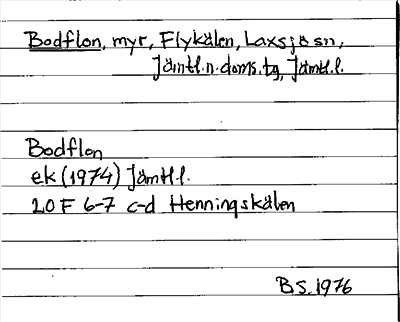 Bodflon, myr, Flykälen, Laxsjö sn,
Jämtl.n.doms.tg, Jämtl.l.
Bodflon
ek (1974) Jämtl.l.
20 F 6-7 c-d Henningskälen
BS.1976